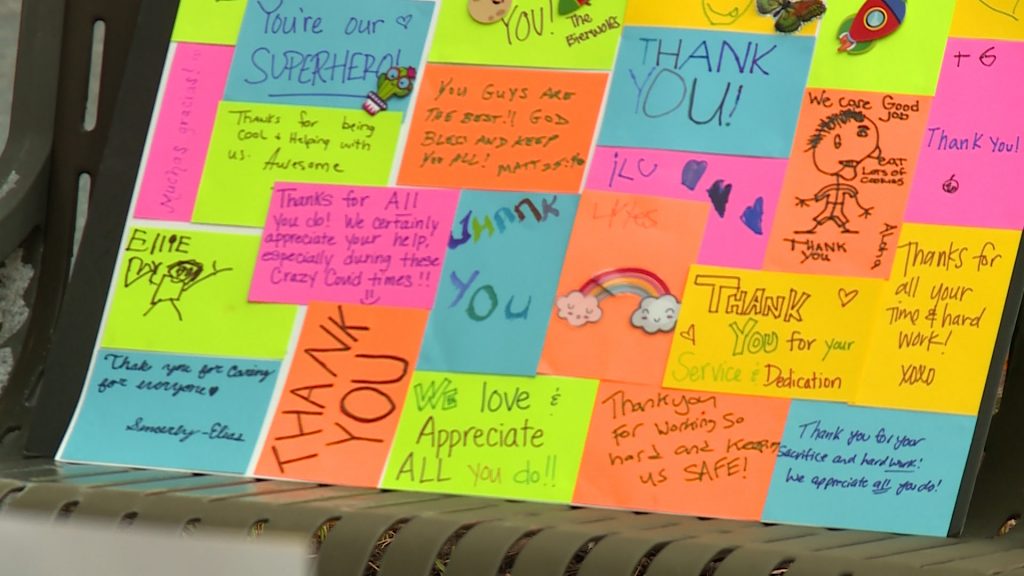 You're our
SUPERHERO!
YOU!
The
Bierwolfs
THANK
YOU!
+ G
Thank You!
Muchas gracias!
Thanks for being
cool & Helping with
us. Awesome
YOU GUYS ARE
THE BEST!! GOD
BLESS AND KEEP
YOU ALL! MATT
ILU
We care Good
job
EAT
Lots of
Cookies
THANK
YOU
ELLIE
Thanks for All
you do! We certainly
appreciate your help,
especially during these
Crazy Covid times!!
THANK
YOU
THANK
YOU for your
Service & Dedication
Thanks for
all your
Time & hard
Work!
XOXO
Thank you for Caring
for everyone
Sincerely-Elias
THANK
YOU
WE love &
Appreciate
ALL you do!!
Thank you
For Working So
hard and Keeping
us SAFE!
Thank you for your
sacrifice and hard work!
We appreciate all you do!